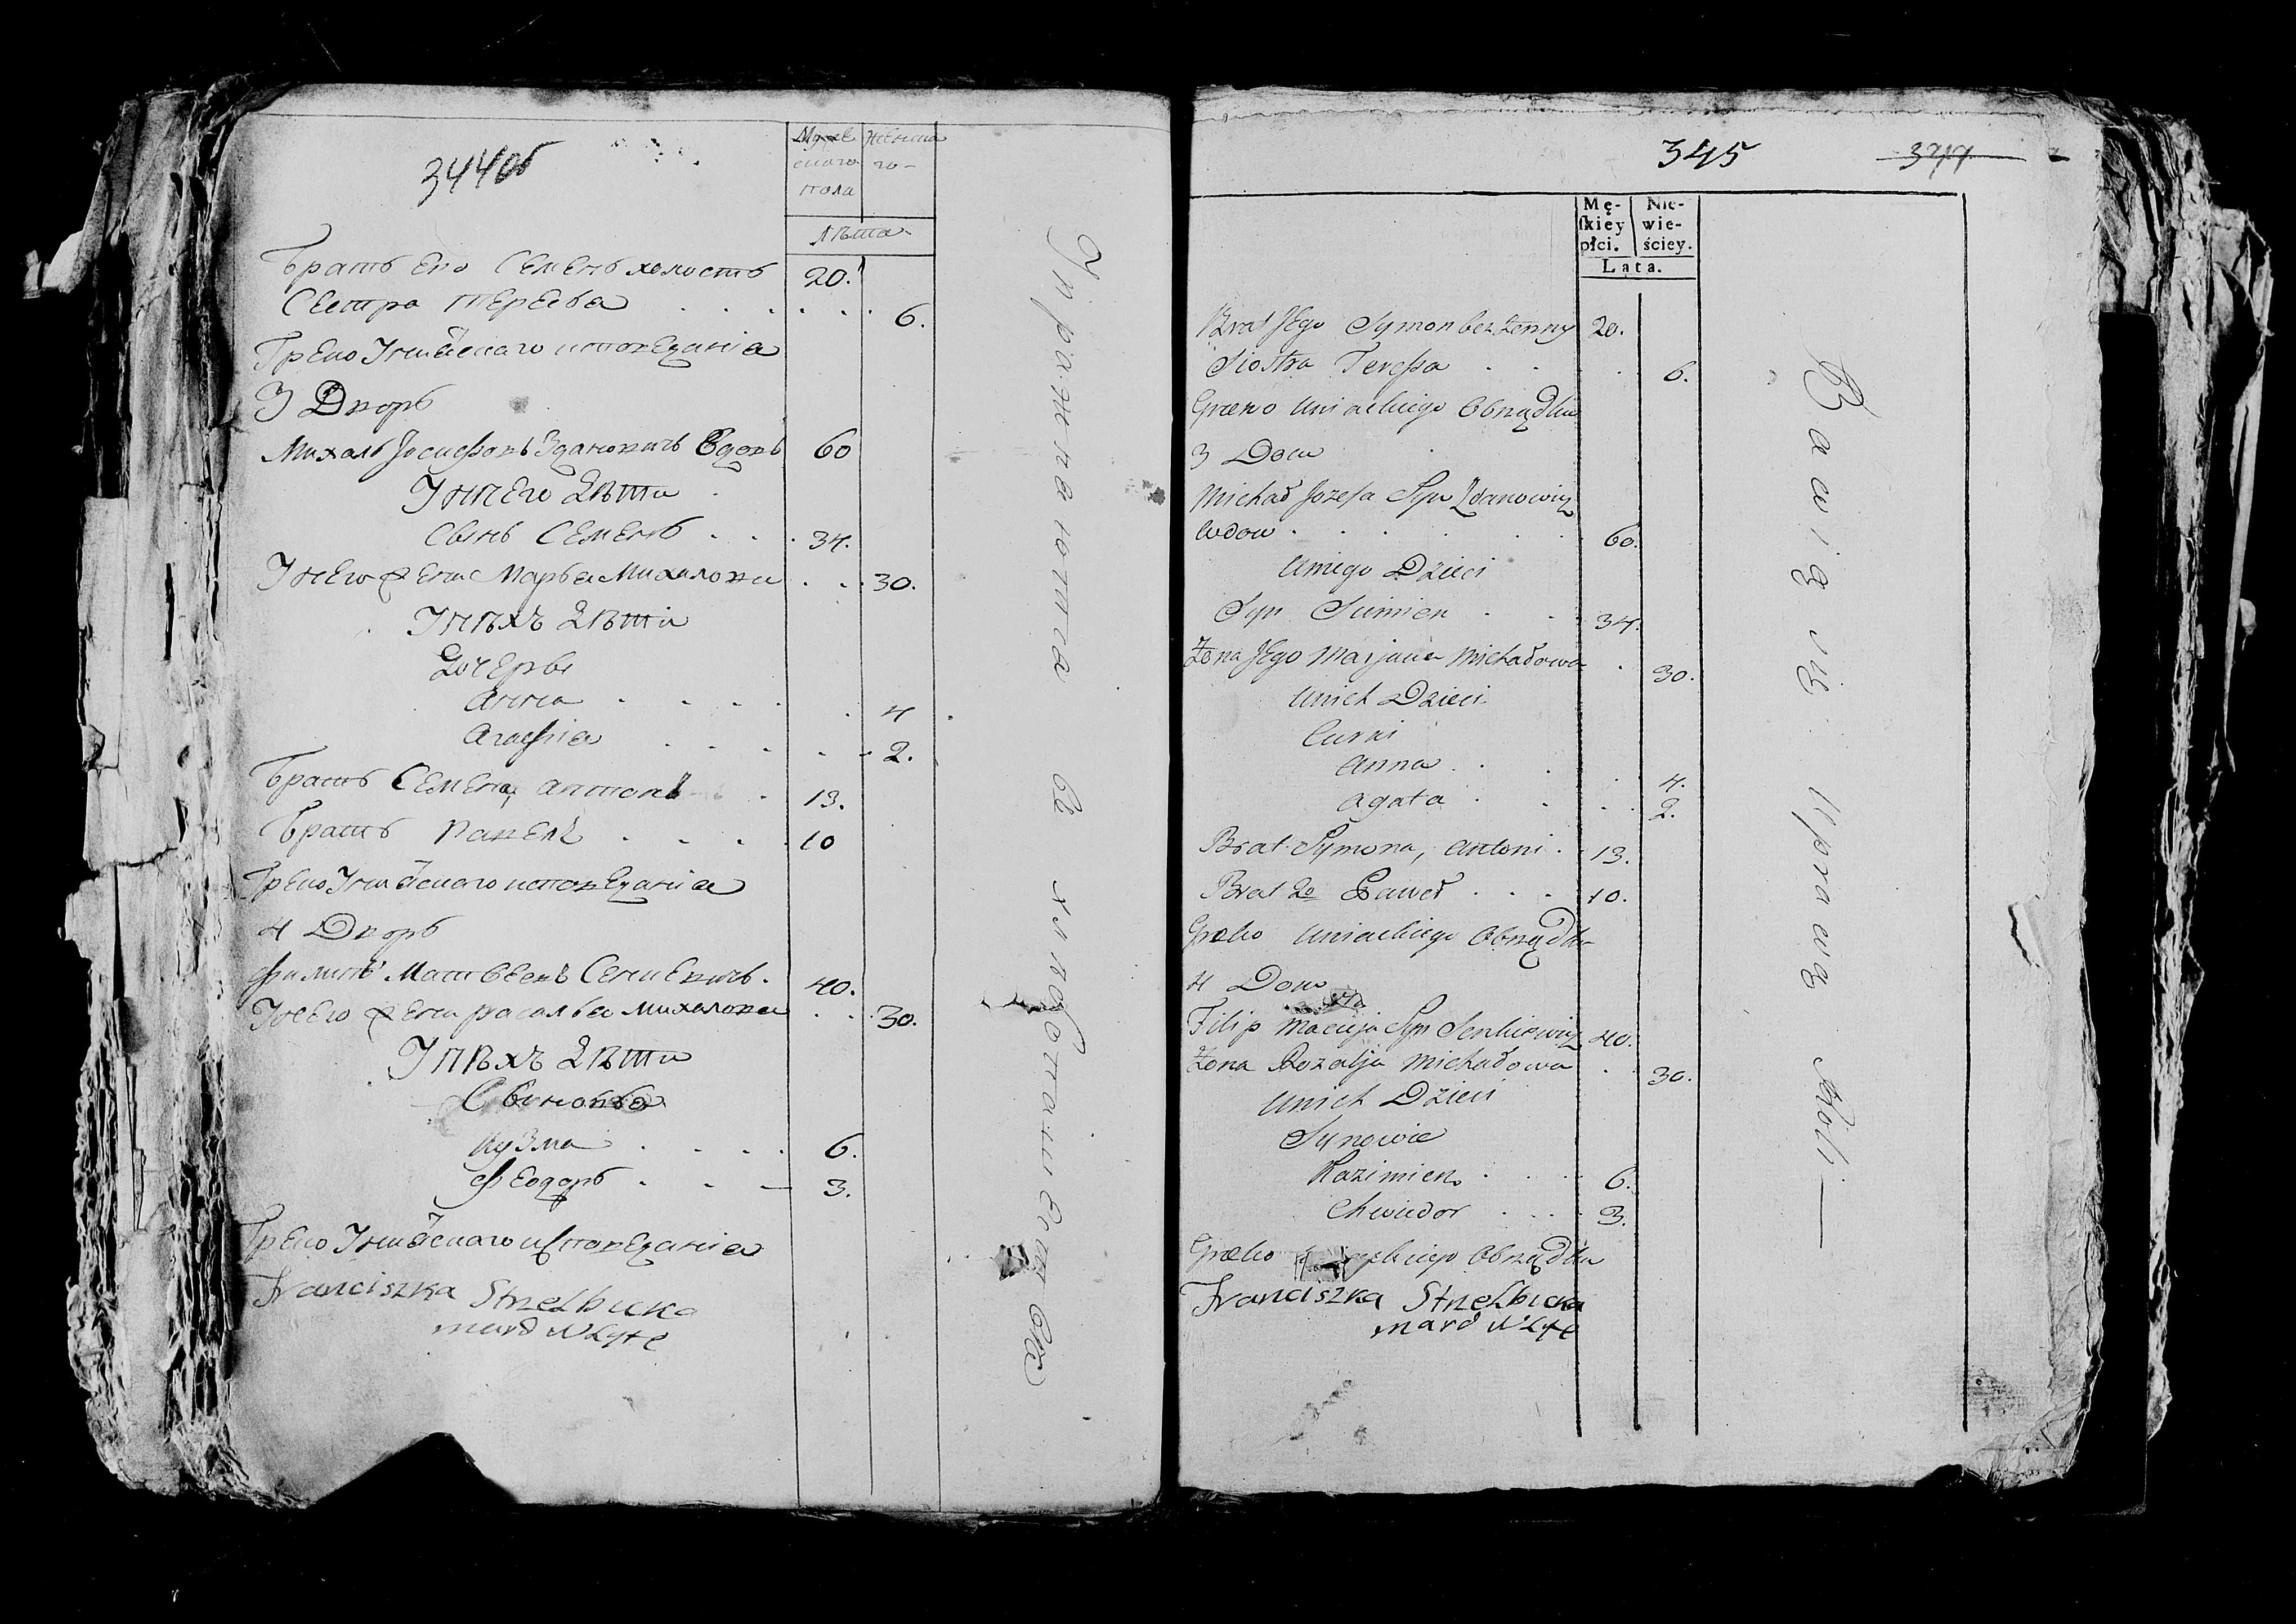 344об
Мужескаго пола
Женска го-
Лѣта
Братъ Его Семенъ холостъ 20.
Сестра Тересья . . . . . . 6.
Греко Униацкаго исповеданія
3 Дворъ
Михалъ Іосифовъ Здановичъ Вдовъ 60
У него дѣти
Сынъ Семенъ . . . 34.
У Него Жена Марья Михалова . . . 30.
У нѣхъ дѣти
Дочеры
Анна . . . . . 4
Агафія . . . . . . 2.
Братъ Семена, Антонъ . 13.
Братъ Павелъ . . . . 10
Греко Униацкаго исповеданія
4 Дворъ
Филипъ Матвеевъ Сенкевичъ. 40.
У Него Жена Расалья Михалова . . 30.
У нѣхъ дѣти
Сыновья
Кузма . . . . 6.
Феодоръ . . — 3.
Греко Униацкаго исповеданія
Franciszka Strzelbicka
mard
Упражнаютса въ хлѣбопашествѣ
345
Mę- ſkiey płci.
Nie- wie- ściey.
Lata.
Brat Jego Symon bezżenny 20.
Siostra Teressa . . . 6.
Græko Uniackiego Obrządku
3 Dom
Michał Jozefa Syn Zdanowicz
Wdow . . . . . . 60.
U niego Dzieci
Syn Siemien . . 34.
Żona Jego Marjanna Michałowa . 30.
U nich Dzieci
Curki
Anna . . . 4.
Agata . . . . 2.
Brat Symona, Antoni . 13.
Brat 2o Paweł . . . 10.
Græko Uniackiego Obrządku
4 Dom
Filip Macieja Syn Senkiewicz 40.
Żona Rozalja Michałowa . 30.
U nich Dzieci
Synowie
Kazimierz . . . 6.
Chwiedor . . . 3.
Græko Obrządku
Franciszka Strzelbicka
mard
Bawią się Uprawą Roli —